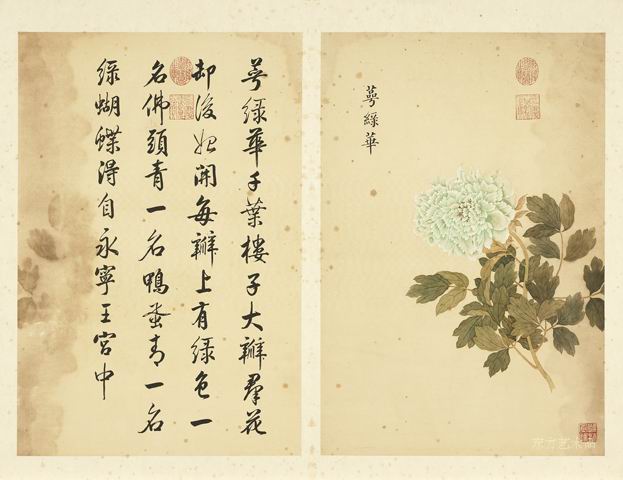 萼綠華
萼綠華千葉樓子大瓣羣花
却後始開每瓣上有綠色一
名佛頭青一名鴨蛋青一名
綠蝴蝶得自永寧王宮中